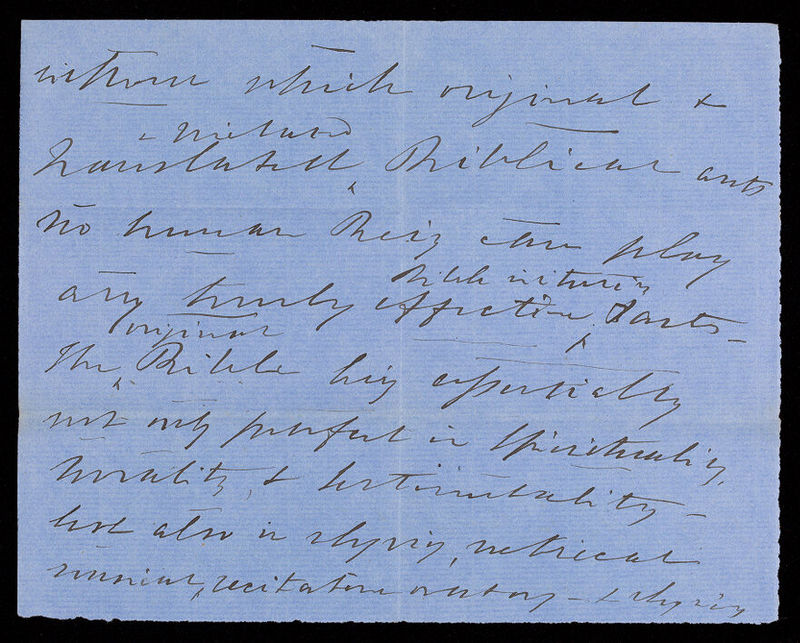 without which original &
& metered
translated ^ Biblical arts
no human Being can play
Bible initurein
any truly effective ^ parts -
original
The ^ Bible being essentially
not only perfect in Spirituality,
Morality, & Sentimentality -
but also in rhyming, metrical
musical, recitative oratory - & rhyming